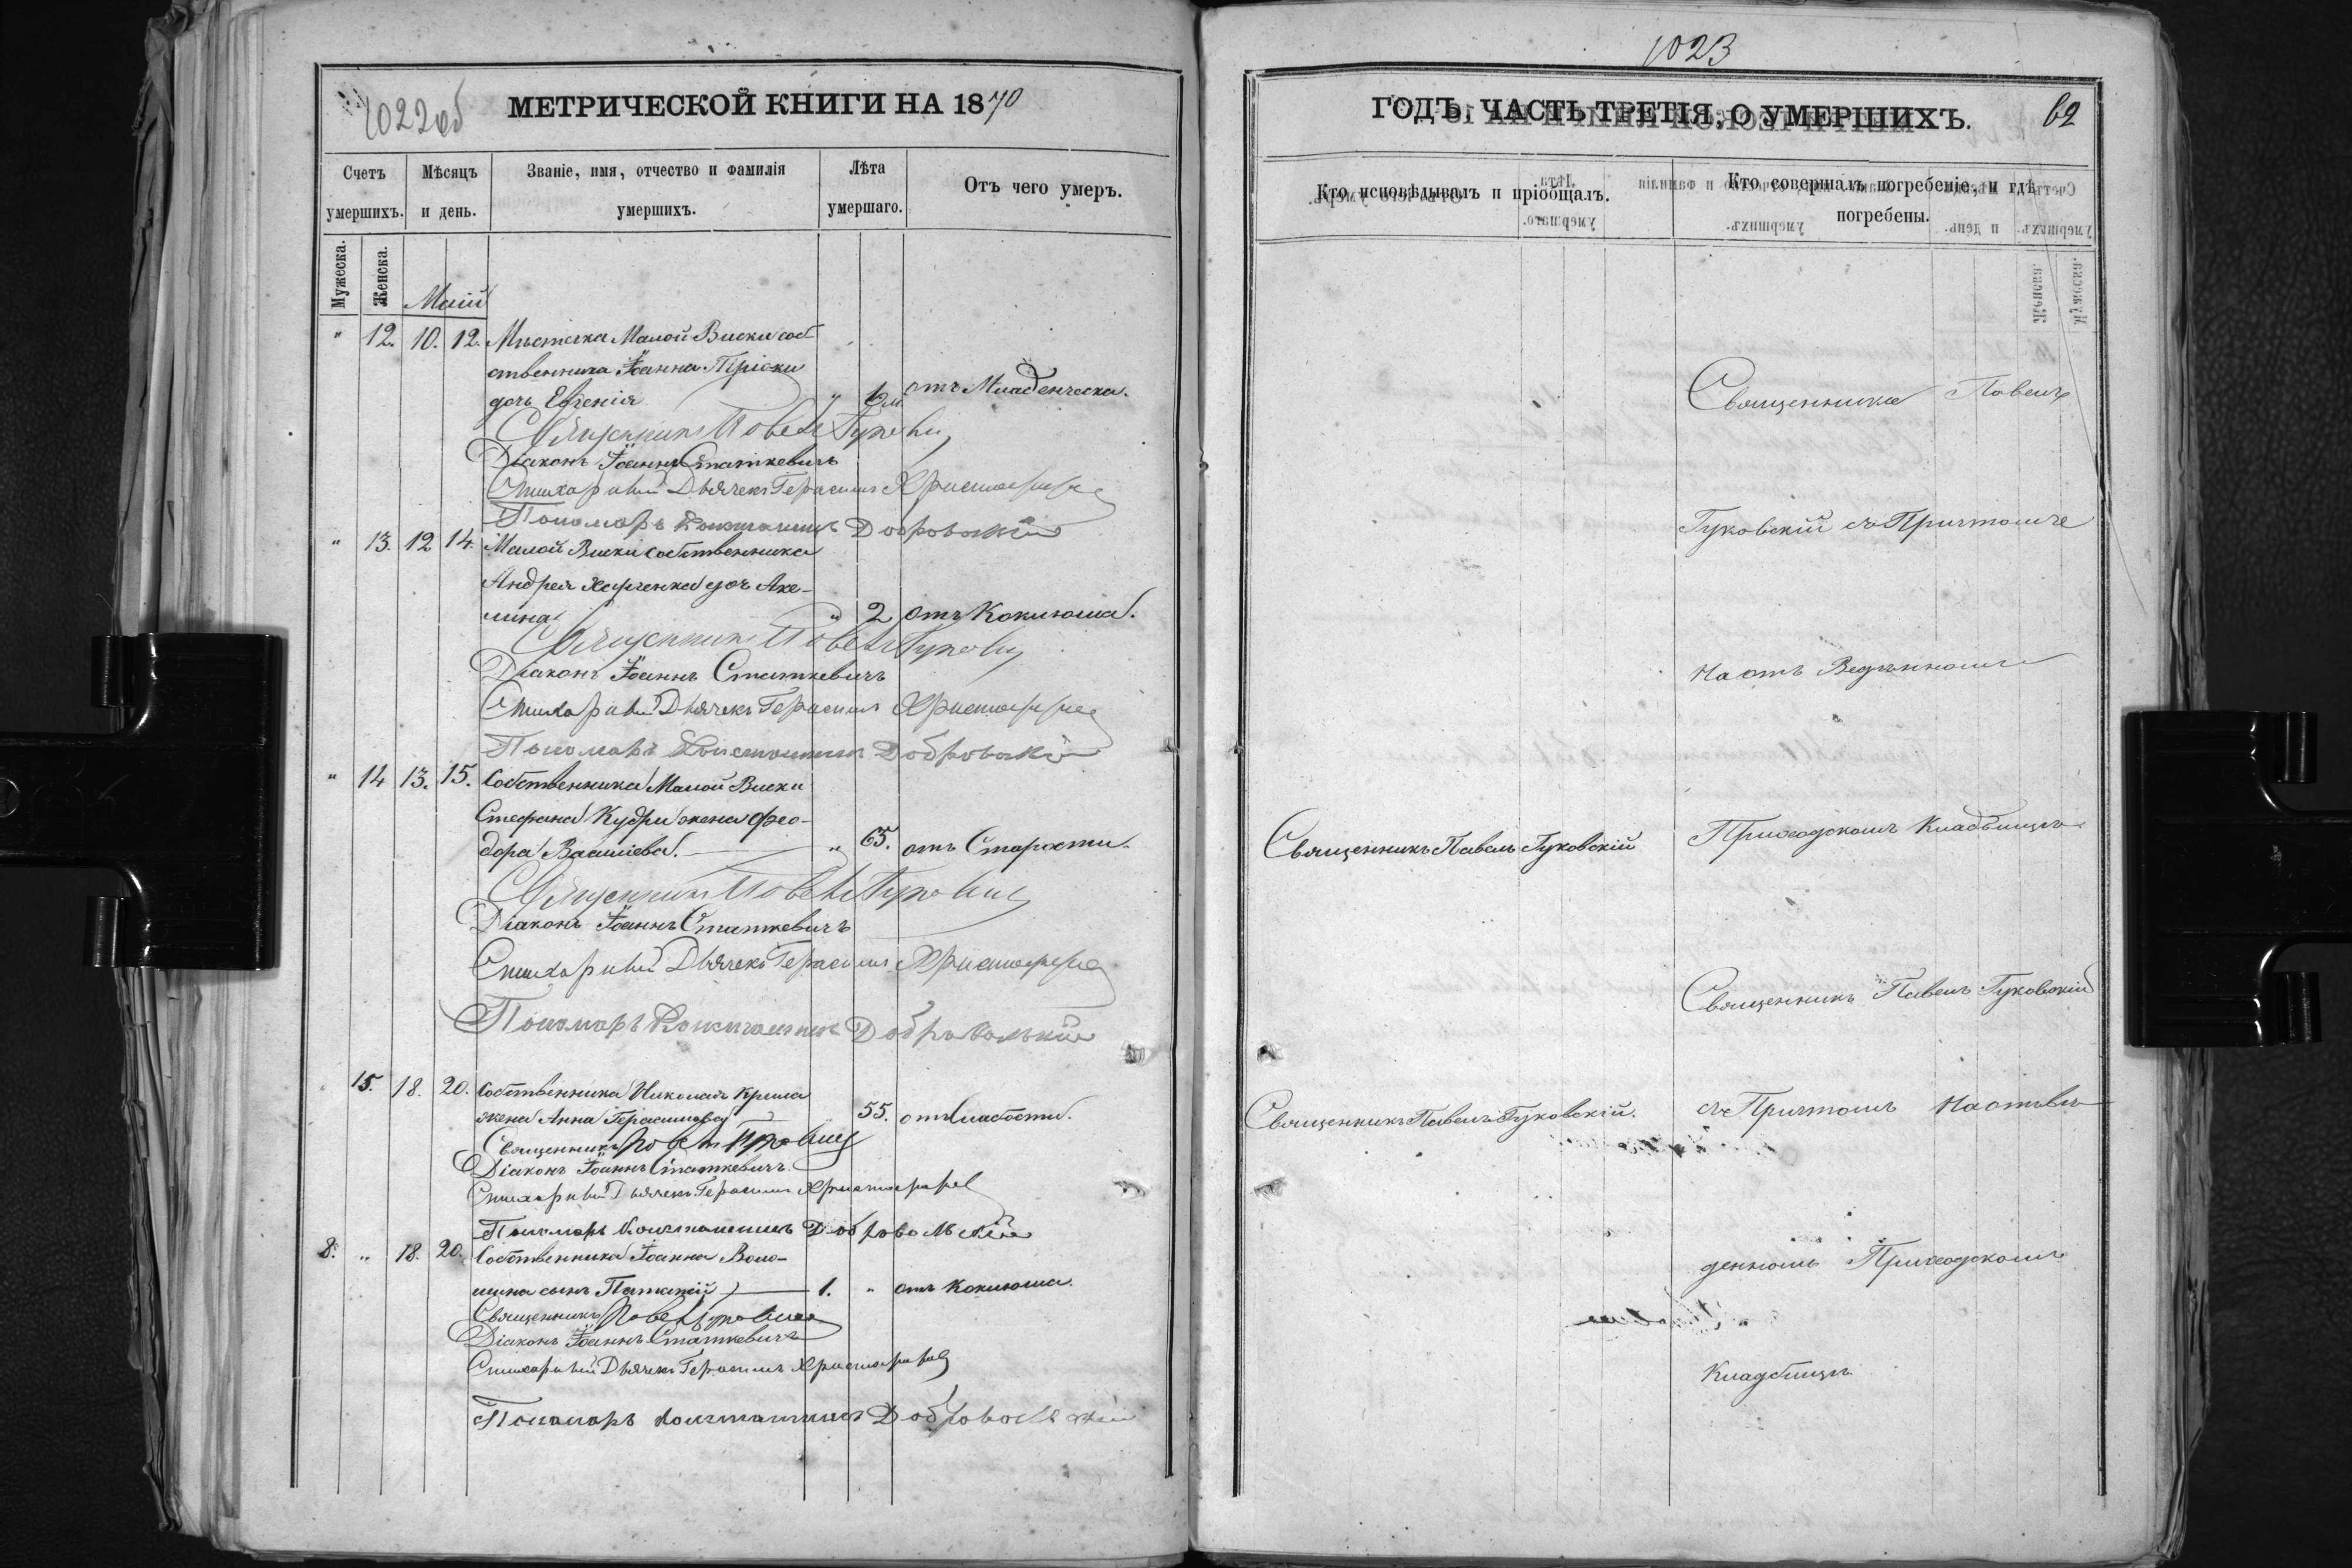 1022об
МЕТРИЧЕСКОЙ КНИГИ НА 1870
Счетъ умершихъ.
Мѣсяцъ и день.
Званіе, имя, отчество и фамилія умершихъ.
Лѣта умершаго.
Отъ чего умеръ.
Мужеска.
Женска.
Маій
" 12. 10. 12. Мѣстечка Малой Виски соб
ственника Іоанна
дочь Евгенія " 6 м. отъ Младенческа.
Священникъ Павелъ
Діаконъ Іоаннъ Статкевичъ
Стихарный Дьячекъ Герасимъ
Пономарь Константинъ Добровольскій
" 13. 12 14. Малой Виски собственника
Андрея Харченка дочь Аке-
лина " 2 отъ Коклюша.
Священникъ Павелъ
Діаконъ Іоаннъ Статкевичъ
Стихарный Дьячекъ Герасимъ
Пономарь Константинъ Добровольскій
" 14 13. 15. Собственника Малой Виски
Стефана Кудри жена Фео-
дора Васильева. " 65. отъ Старости.
Священникъ Павелъ
Діаконъ Іоаннъ Статкевичъ
Стихарный Дьячекъ Герасимъ
Пономарь Константинъ Добровольскій
15. 18. 20. Собственника Николая
жена Анна Герасимова 55. отъ слабости.
Священникъ Павелъ
Діаконъ Іоаннъ Статкевичъ.
Стихарный Дьячекъ Герасимъ
Пономарь Константинъ Добровольскій
8. " 18. 20. Собственника Іоанна Воло-
шина сынъ 1. " отъ Коклюша.
Священникъ Павелъ
Діаконъ Іоаннъ Статкевичъ
Стихарный Дьячекъ Герасимъ
Пономарь Константинъ Добровольскій
1023
ГОДЪ, ЧАСТЬ ТРЕТІЯ, О УМЕРШИХЪ.
62
Кто исповѣдывалъ и пріобщалъ.
Кто совершалъ погребеніе, и гдѣ
погребены.
Священникъ Павелъ
Гуковскій съ Причтомъ
На отъ Веденномъ
Священникъ Павелъ Гуковскій
Приходскомъ Кладбищѣ
Священникъ Павелъ Гуковскій
Священникъ Павелъ Гуковскій.
съ Причтомъ На отве
денномъ Приходскомъ
Кладбищѣ